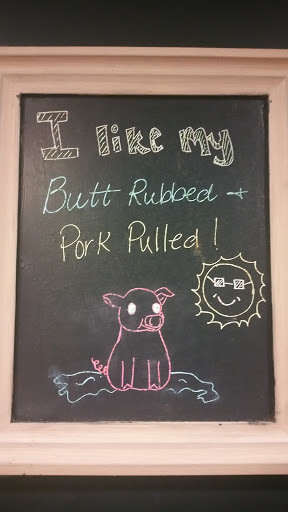 I like my
Butt Rubbed +
Pork Pulled!